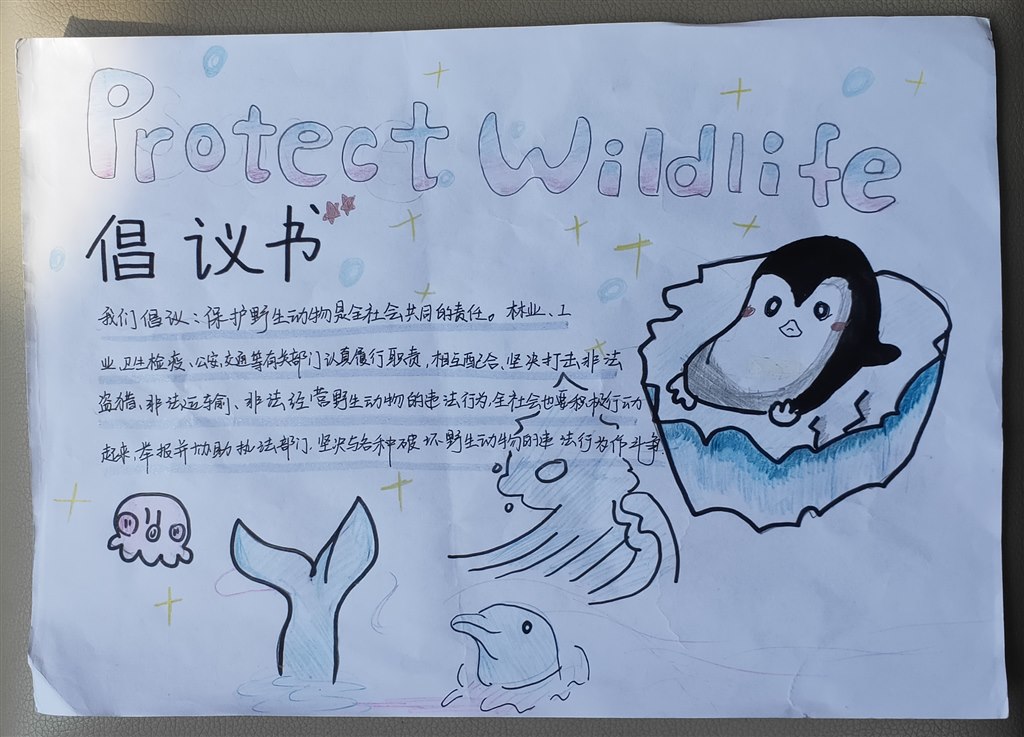 Protect Wildlife
倡议书
我们倡议：保护野生动物是全社会共同的责任。林业、工
业、卫生检疫、公安、交通等有关部门认真履行职责，相互配合，坚决打击非法
盗猎、非法运输、非法经营野生动物的违法行为，全社会也要积极行动
起来，举报并协助执法部门，坚决与各种破坏野生动物的违法行为作斗争